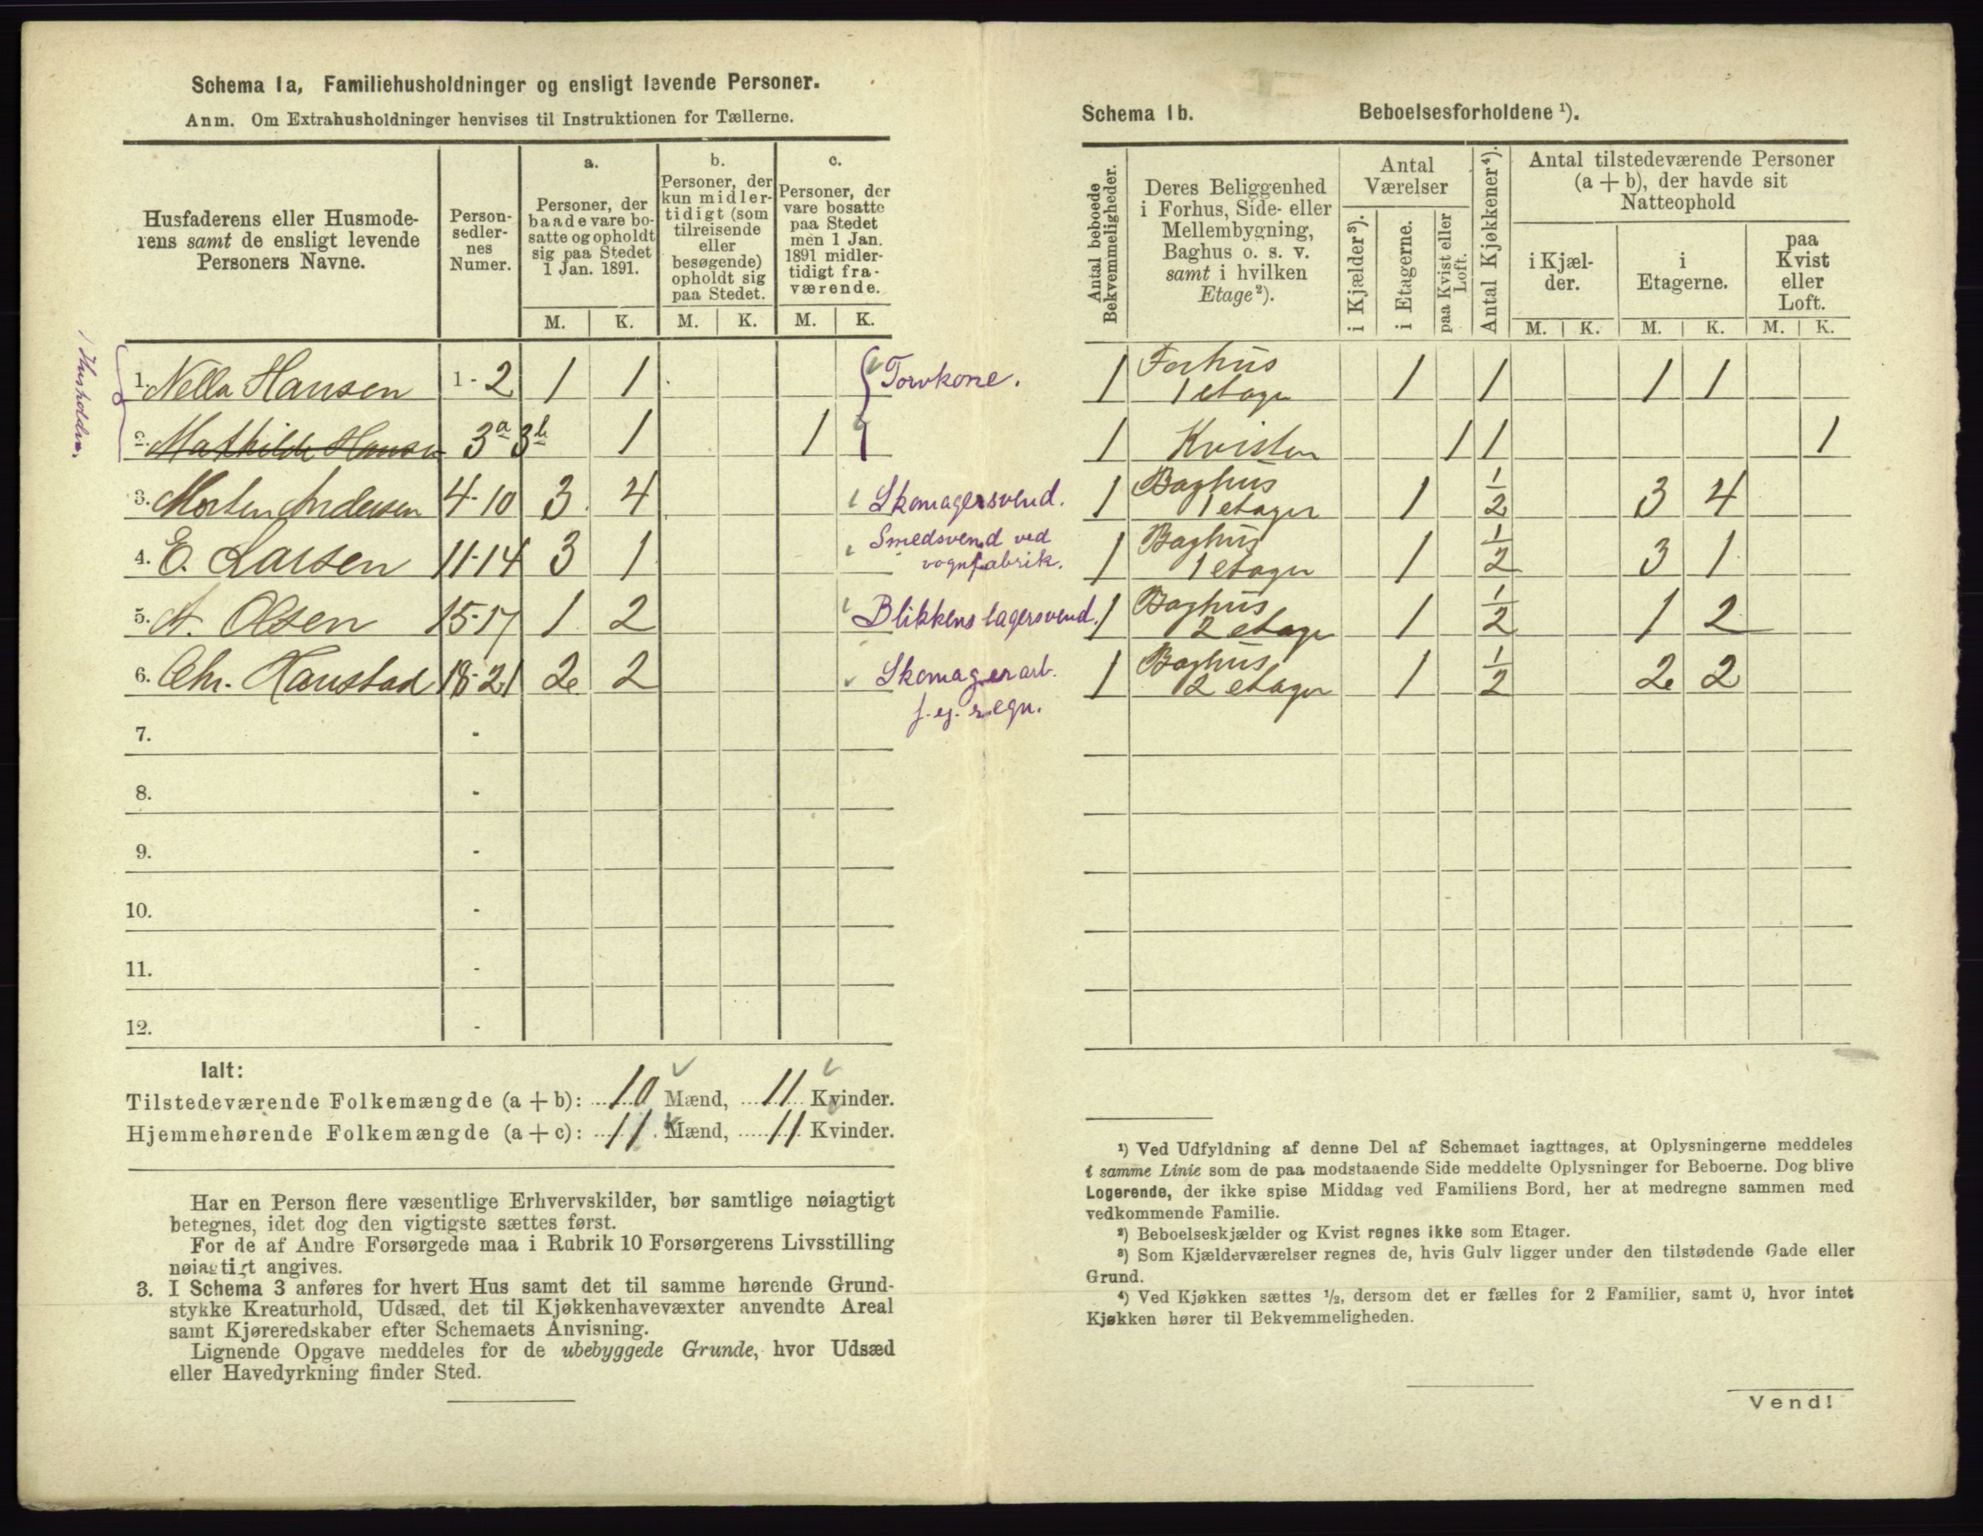 Schema 1a, Familiehusholdninger og ensligt levende Personer.
Anm. Om Extrahusholdninger henvises til Instruktionen for Tællerne.
Husfaderens eller Husmode-
rens samt de ensligt levende
Personers Navne.
Person-
sedler-
nes
Numer.
a.
Personer, der
baade vare bo-
satte og opholdt
sig paa Stedet
1 Jan. 1891.
b.
Personer, der
kun midler-
tidigt (som
tilreisende
eller
besøgende)
opholdt sig
paa Stedet.
c.
Personer, der
vare bosatte
paa Stedet
men 1 Jan.
1891 midler-
tidigt fra-
værende.
M. K. M. K. M. K.
1 Husholdn.
1. Nella Hansen 1 - 2 1 1 Torvkone.
2. Mathilde Hansen 3a 3b 1 1
3. Morten Andersen 4-10 3 4 Skomagersvend.
4. E. Larsen 11-14 3 1 Smedsvend ved
vognfabrik.
5. A. Olsen 15-17 1 2 Blikkenslagersvend.
6. Chr. Hanstad 18-21 2 2 Skomagerarb.
f. eg. regn.
7. -
8. -
9. -
10. -
11. -
12. -
Ialt:
Tilstedeværende Folkemængde (a + b): 10 Mænd, 11 Kvinder.
Hjemmehørende Folkemængde (a + c): 11 Mænd, 11 Kvinder.
Har en Person flere væsentlige Erhvervskilder, bør samtlige nøiagtigt
betegnes, idet dog den vigtigste sættes først.
For de af Andre Forsørgede maa i Rubrik 10 Forsørgerens Livsstilling
nøiagtigt angives.
3. I Schema 3 anføres for hvert Hus samt det til samme hørende Grund-
stykke Kreaturhold, Udsæd, det til Kjøkkenhavevæxter anvendte Areal
samt Kjøreredskaber efter Schemaets Anvisning.
Lignende Opgave meddeles for de ubebyggede Grunde, hvor Udsæd
eller Havedyrkning finder Sted.
Schema 1b. Beboelsesforholdene ¹).
Antal beboede
Bekvemmeligheder.
Deres Beliggenhed
i Forhus, Side- eller
Mellembygning,
Baghus o. s. v.
samt i hvilken
Etage²).
Antal
Værelser
i Kjælder³).
i Etagerne.
paa Kvist eller
Loft.
Antal Kjøkkener⁴).
Antal tilstedeværende Personer
(a + b), der havde sit
Natteophold
i Kjæl-
der.
i
Etagerne.
paa
Kvist
eller
Loft.
M. K. M. K. M. K.
1 Forhus
1 etager 1 1 1 1
1 Kvisten 1 1 1
1 Baghus
1 etager 1 1/2 3 4
1 Baghus
1 etager 1 1/2 3 1
1 Baghus
2 etager 1 1/2 1 2
1 Baghus
2 etager 1 1/2 2 2
¹) Ved Udfyldning af denne Del af Schemaet iagttages, at Oplysningerne meddeles
i samme Linie som de paa modstaaende Side meddelte Oplysninger for Beboerne. Dog blive
Logerende, der ikke spise Middag ved Familiens Bord, her at medregne sammen med
vedkommende Familie.
²) Beboelseskjælder og Kvist regnes ikke som Etager.
³) Som Kjælderværelser regnes de, hvis Gulv ligger under den tilstødende Gade eller
Grund.
⁴) Ved Kjøkken sættes ½, dersom det er fælles for 2 Familier, samt 0, hvor intet
Kjøkken hører til Bekvemmeligheden.
Vend!